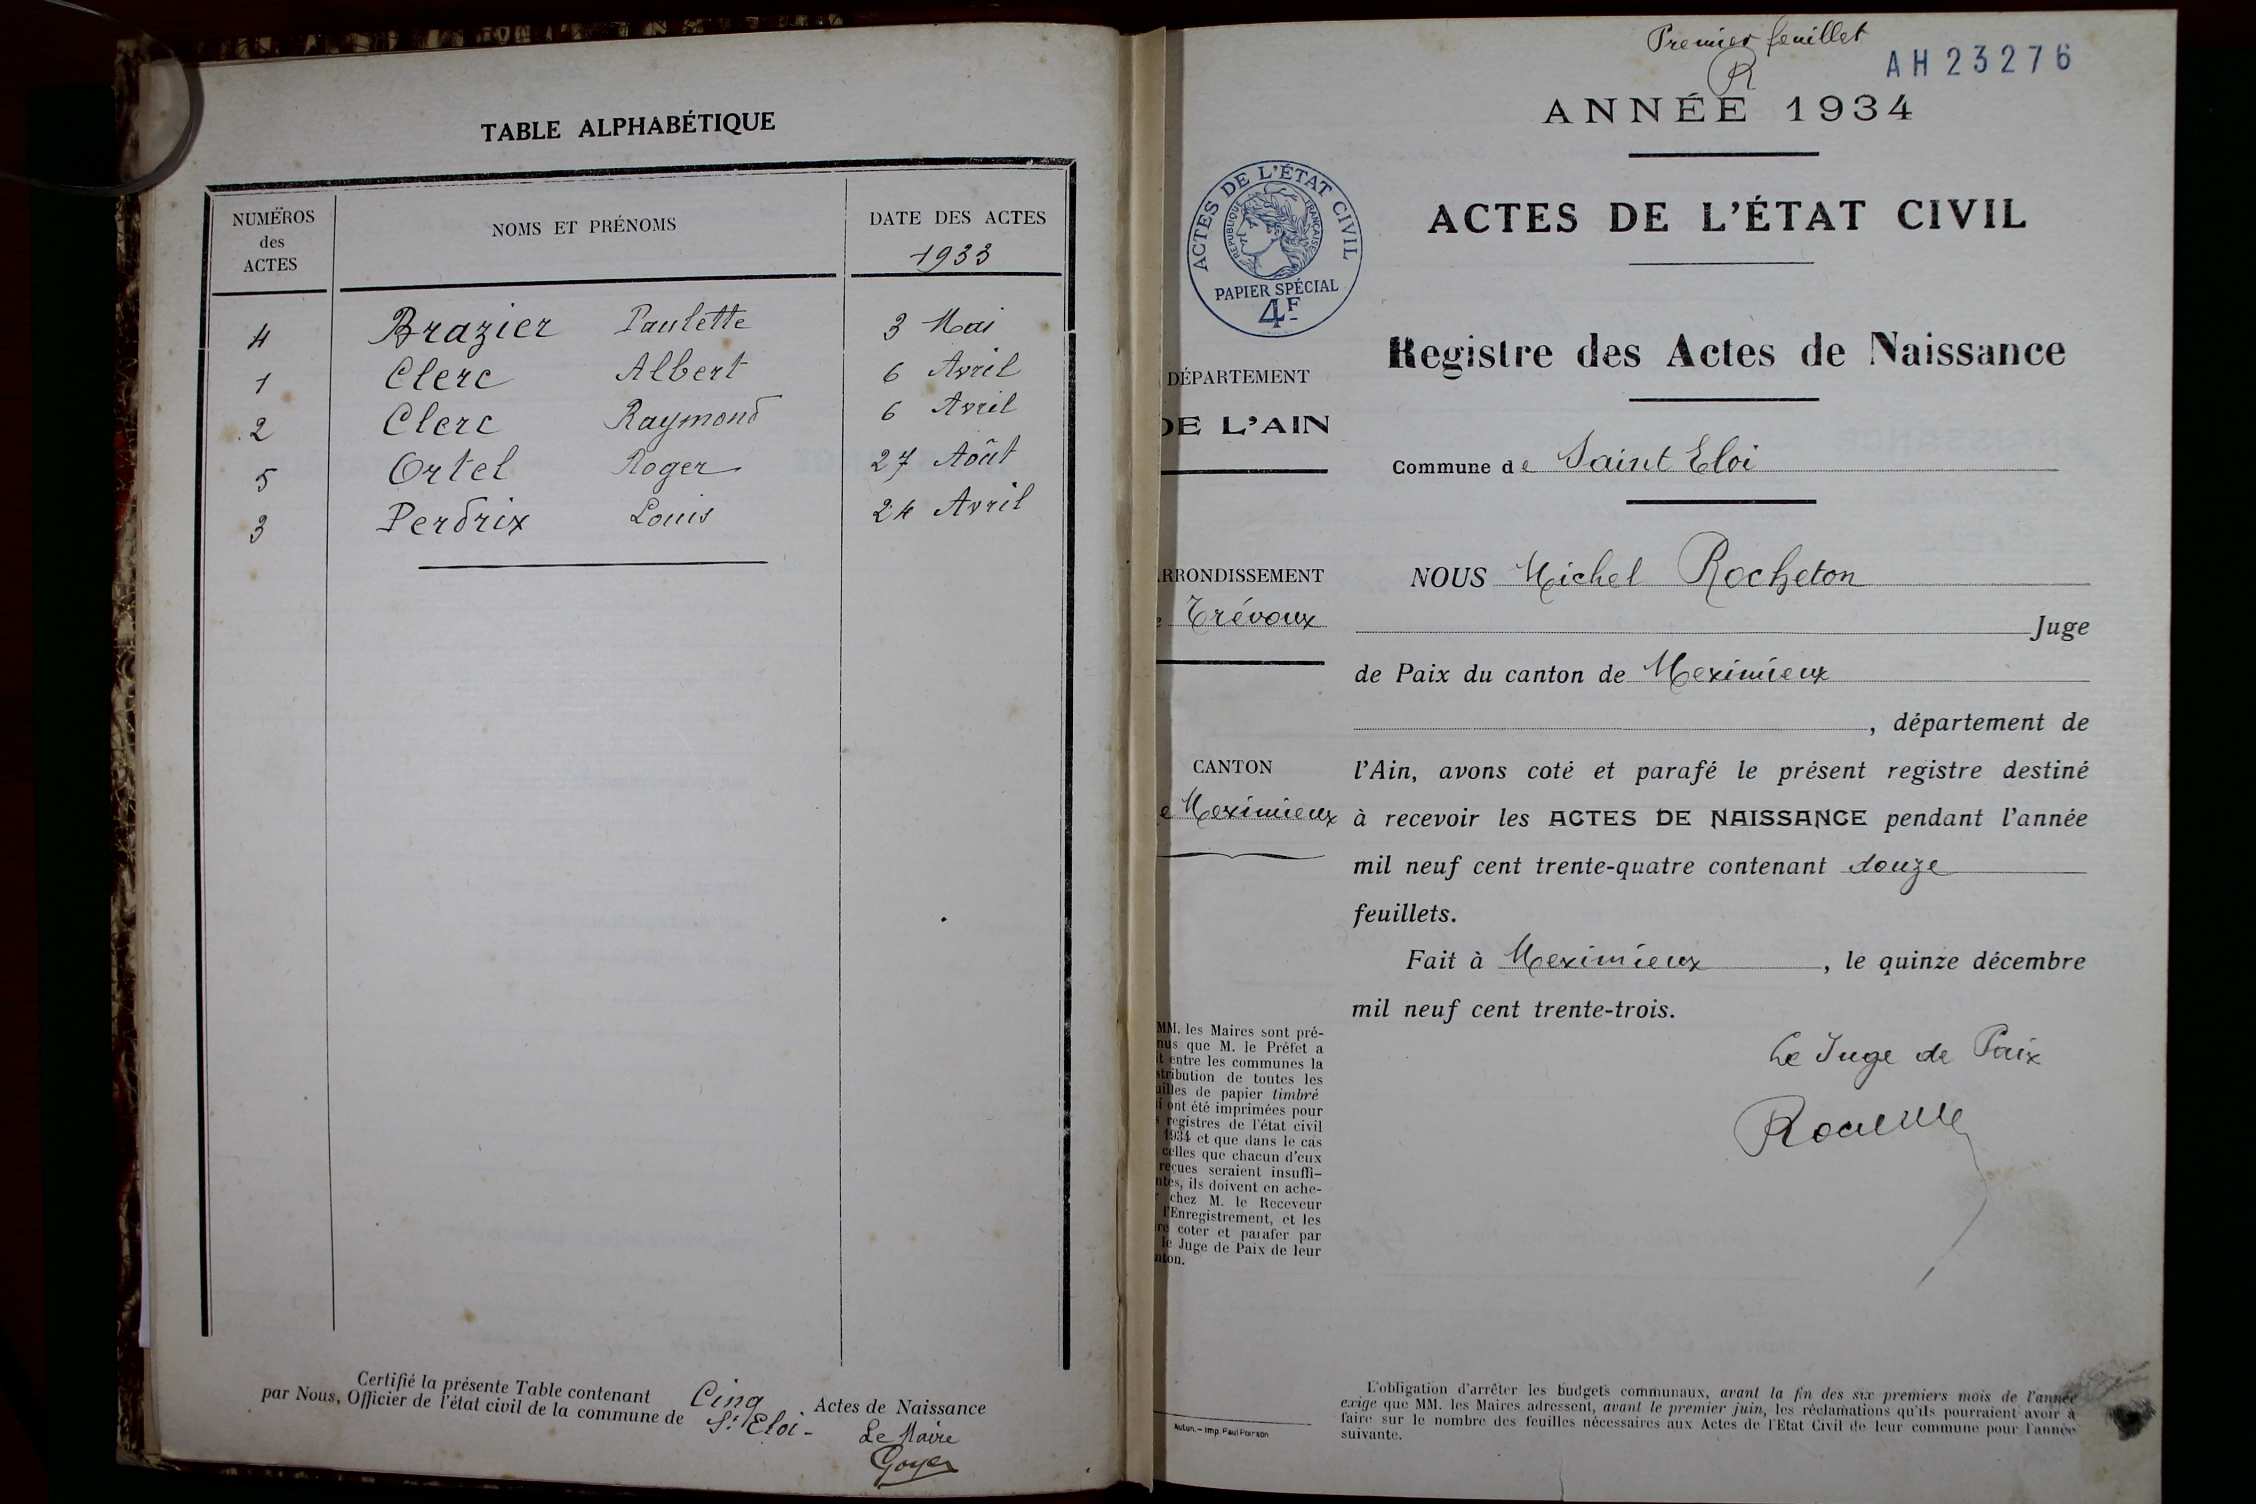 TABLE ALPHABÉTIQUE
NUMÉROS
des
ACTES
NOMS ET PRÉNOMS
DATE DES ACTES
1933
4 Brazier Paulette 3 Mai
1 Clerc Albert 6 Avril
2 Clerc Raymond 6 Avril
5 Ortel Roger 27 Août
3 Perdrix Louis 24 Avril
Certifié la présente Table contenant Cinq Actes de Naissance
par Nous, Officier de l'état civil de la commune de St Eloi -
Le Maire
Goyer
Premier feuillet
R
AH23276
ANNÉE 1934
ACTES DE L'ÉTAT CIVIL
RÉPUBLIQUE FRANÇAISE
PAPIER SPÉCIAL
4F
ACTES DE L'ÉTAT CIVIL
Registre des Actes de Naissance
DÉPARTEMENT
DE L'AIN
Commune de Saint Eloi
RRONDISSEMENT
e Trévoux
CANTON
e Meximieux
NOUS Michel Rocheton
Juge
de Paix du canton de Meximieux
, département de
l'Ain, avons coté et parafé le présent registre destiné
à recevoir les ACTES DE NAISSANCE pendant l'année
mil neuf cent trente-quatre contenant douze
feuillets.
Fait à Meximieux, le quinze décembre
mil neuf cent trente-trois.
Le Juge de Paix
MM. les Maires sont pré-
nus que M. le Préfet a
it entre les communes la
stribution de toutes les
uilles de papier timbré
i ont été imprimées pour
s registres de l'état civil
1934 et que dans le cas
celles que chacun d'eux
reçues seraient insuffi-
ntes, ils doivent en ache-
r chez M. le Receveur
l'Enregistrement, et les
re coter et parafer par
le Juge de Paix de leur
nton.
Autun. - Imp. Paul Poirson
L'obligation d'arrêter les budgets communaux, avant la fin des six premiers mois de l'année
exige que MM. les Maires adressent, avant le premier juin, les réclamations qu'ils pourraient avoir à
faire sur le nombre des feuilles nécessaires aux Actes de l'Etat Civil de leur commune pour l'année
suivante.